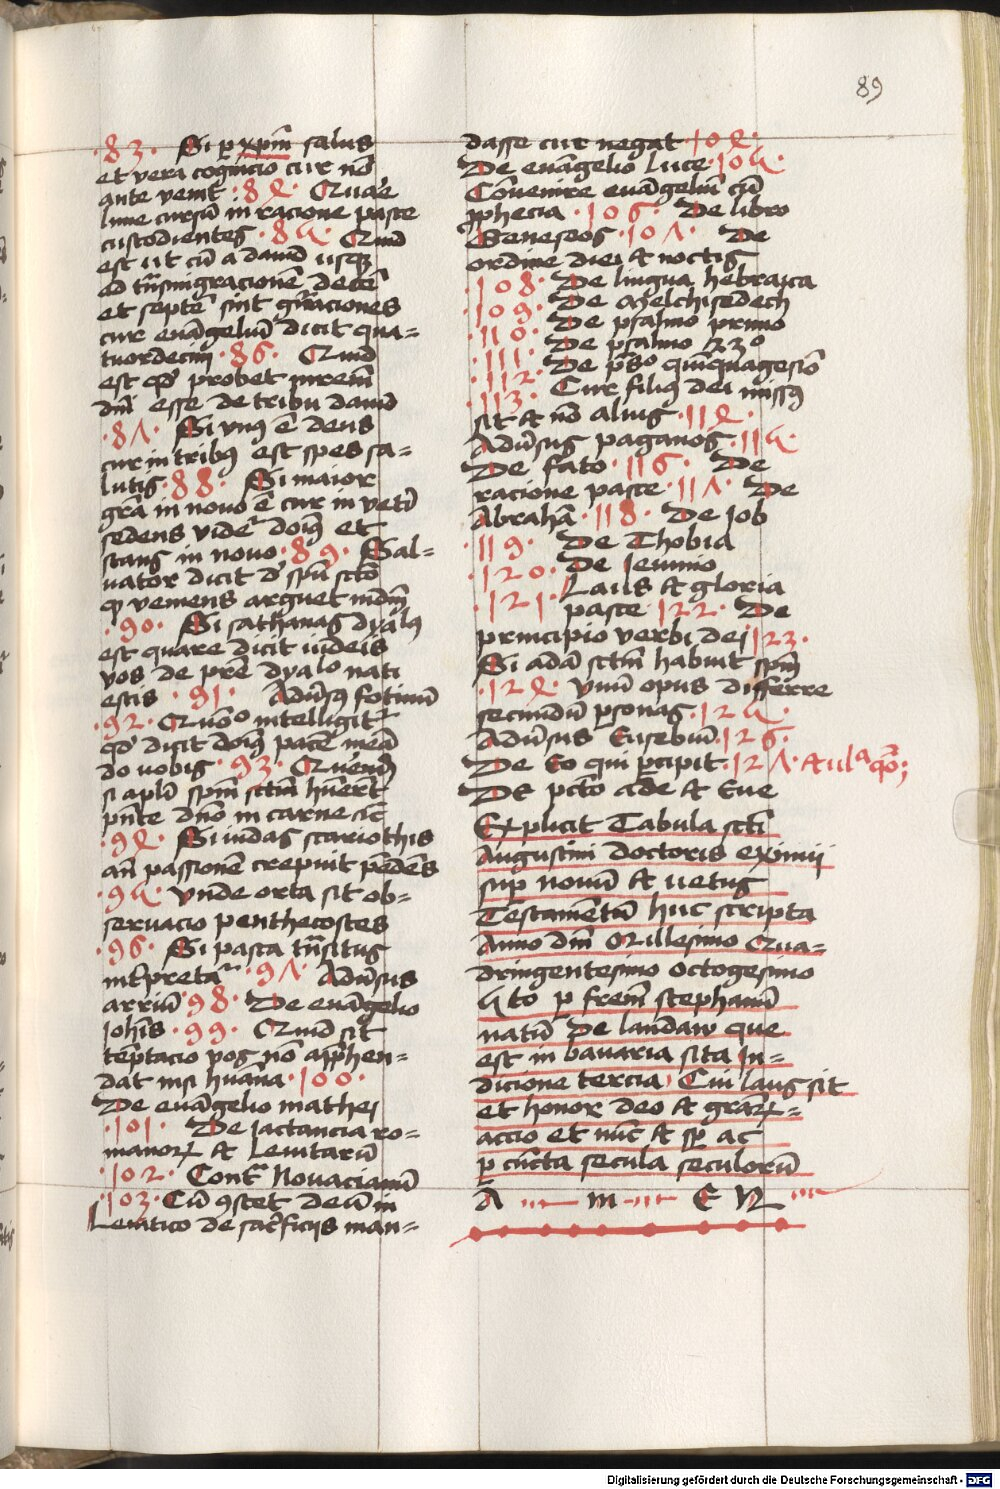 89
·83· Si p xpm̄ salus
et vera cognicio cur nō
ante venit ·84· Quare
lune cursū in racione pasce
custodientes ·85· Quid
est ut cū a dauid usqꝫ
ad tn̄smigracionē decē
et septē sint gn̄raciones
cur euāgeliū dicit qua=
tuordecim ·86· Quid
est qd' probet
dn̄i esse de tribu dauid
·87· Si vnꝰ ē deus
cur in tribꝰ est spes sa=
lutis ·88· Si maior
grā in nouo ē cur in veti
sedens videt᷑ doīꝰ et
stans in nouo ·89· Sal=
uator dicit d' spū sctō
qꝫ veniens arguet mdm̄
·90· Si sathanas dyalꝰ
est quare dicit iudeis
vos de pr̄e dyalo nati
estis ·91· Adūsꝰ fotinū
·92· Quōo intelligit᷑
qd' dicit doīꝰ pacē meā
do uobis ·93·
si apl̄i spm̄ sctm̄ hūert
pn̄te dn̄o in carne sic
·94· Si iudas scariothis
an̄ passionē crepuit
·95· Vnde orta sit ob=
seruacio penthecostes
·96· Si pasca tn̄situs
int̄pretat᷑ ·97· Adūsus
arriū ·98· De euāgelio
Johis ·99· Quid sit
tēptacio vos nō apphen=
dat nisi huāna ·100·
De euāgelio mathei
·101· De Jactancia ro=
manoꝝ et Leuitarū
·102· Cont᷑ Nouacianū
·103· Cū ꝯstet deū in
Leuitico de sac᷑ficijs man=
dasse cur negat ·104·
De euāgelio Luce ·105·
Cōuenire euāgeliū cū
ꝓphecia ·106· De libro
Geneseos ·107· De
ordine diei et noctis
·108· De lingua hebraica
·109· De Melchisedech
·110· De psalmo primo
·111· De psalmo 23o
·112· De pso quīquagesīo
·113· Cur filiꝰ dei missꝰ
sit et nō aliꝰ ·114·
Adūsus paganos ·115·
De fato ·116· De
racione pasce ·117· De
Abrahā ·118· De Job
·119· De Thobia
·120· De Jeiunio
·121· Laus et gloria
pasce 122· De
principio verbi dei 123·
Si adā sctm̄ habuit spm̄
·124· Vnū opus differre
secundū psonas ·125·
Adūsus Eusebiū ·126·
De Eo qui pcipit ·127· et ula qō;
De pctō ade et Eue
Explicit Tabula sctī
Augustini doctoris eximij
sup nouū et uetus
Testamētū huc scripta
Anno dn̄i Millesimo Qua=
dringentesimo octogesimo
5to p frem̄ stephanū
natū De landaw que
est in bauaria sita In=
dicione tercia Cui laus sit
et honor deo et grāꝝ=
accio et nūc et sp ac
p cūcta secula seculorū
A m E N
Digitalisierung gefördert durch die Deutsche Forschungsgemeinschaft - DFG